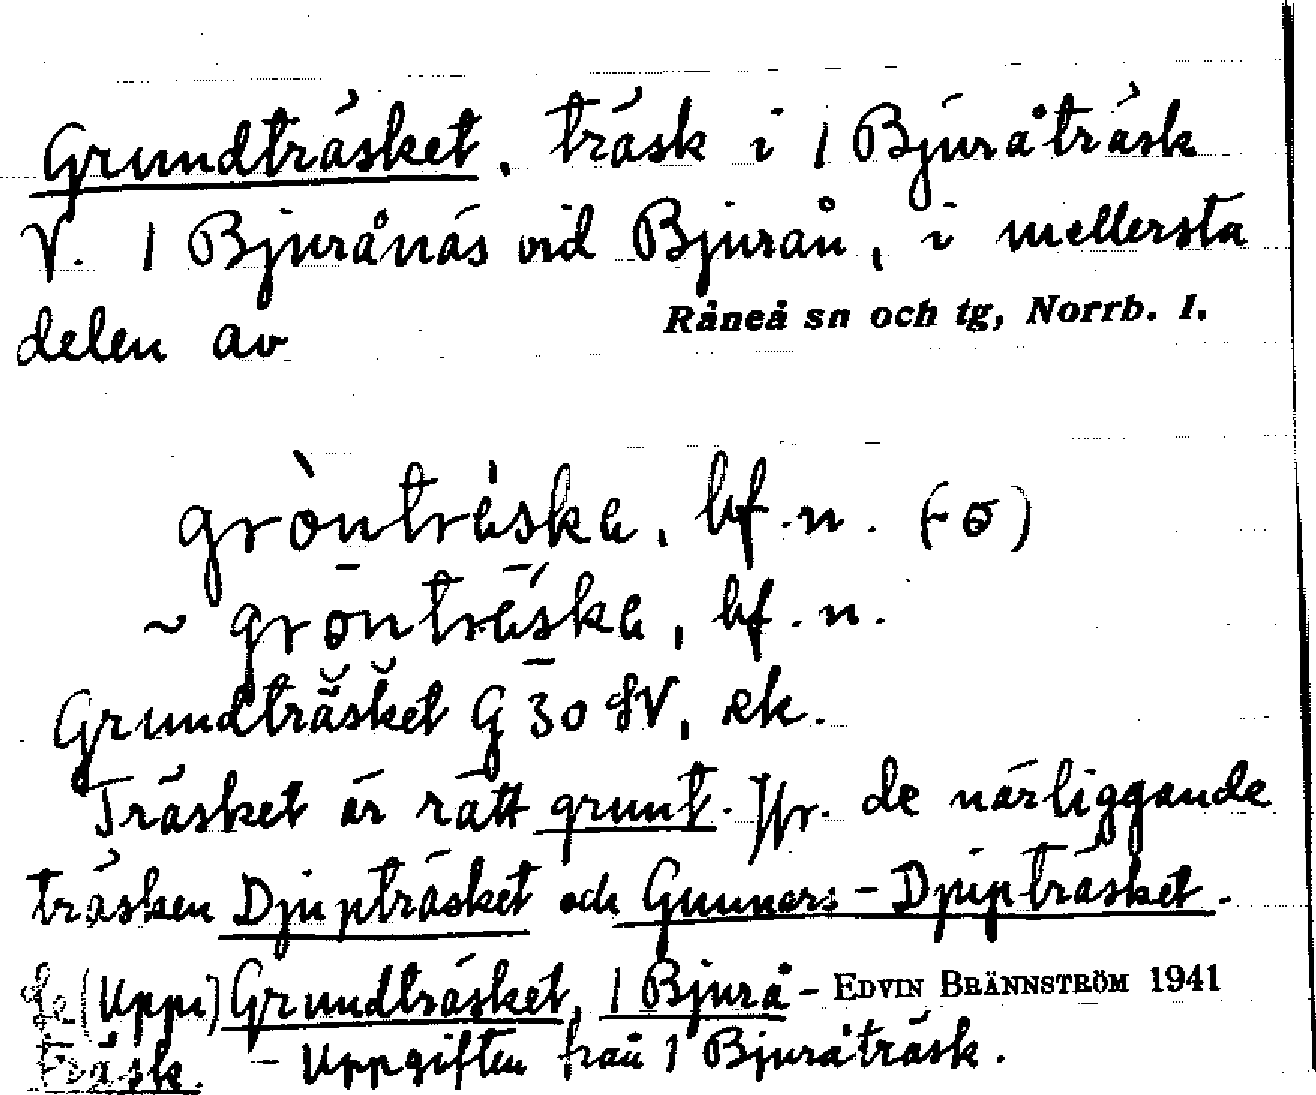 Grundträsket, träsk i 1 Bjuråträsk
V. 1 Bjurånäs vid Bjurån, i mellersta
delen av Råneå sn och tg, Norrb. l.
gròntrèska, bf. n. (-ɞ)
~ gröntréska, bf. n.
Grundträsket G 30 SV, ek.
Träsket är rätt grunt. Jfr. de närliggande
träsken Djupträsket och Gunnars-Djupträsket.
Se (Uppi) Grundträsket, 1 Bjurå- EDVIN BRÄNNSTRÖM 1941
träsk. - Uppgiften från 1 Bjuråträsk.